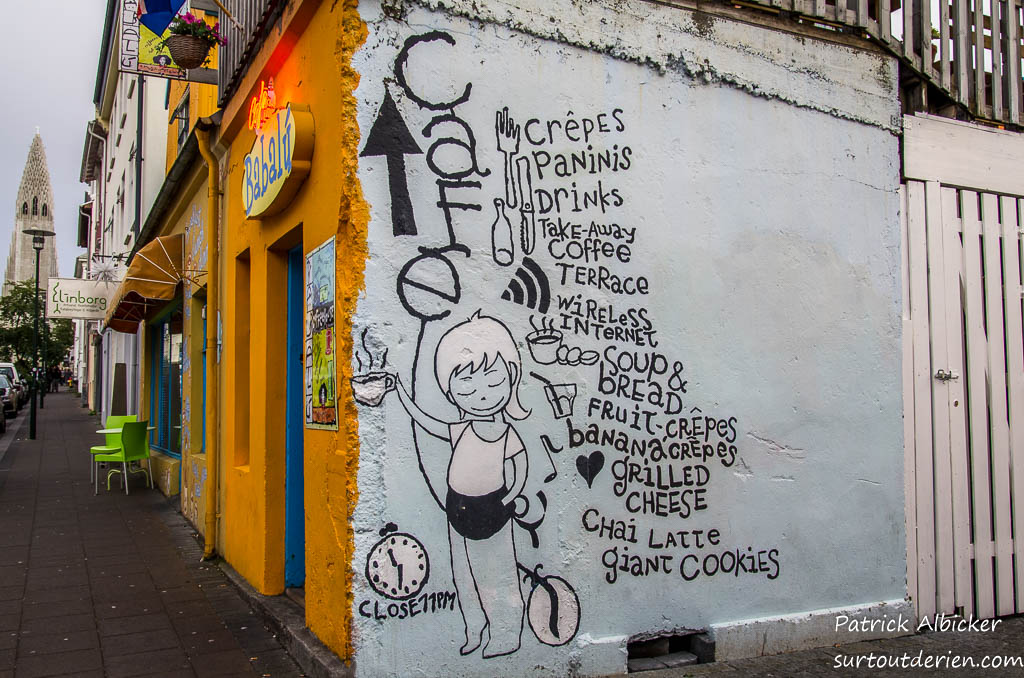 Linborg
Café
Babalú
Café
Crêpes
Paninis
Drinks
Take-Away
Coffee
Terrace
Wireless
Internet
Soup &
Bread
Fruit-Crêpes
Banana crêpes
Grilled
Cheese
Chai Latte
Giant Cookies
Close 11PM
Patrick Albicker
surtoutderien.com